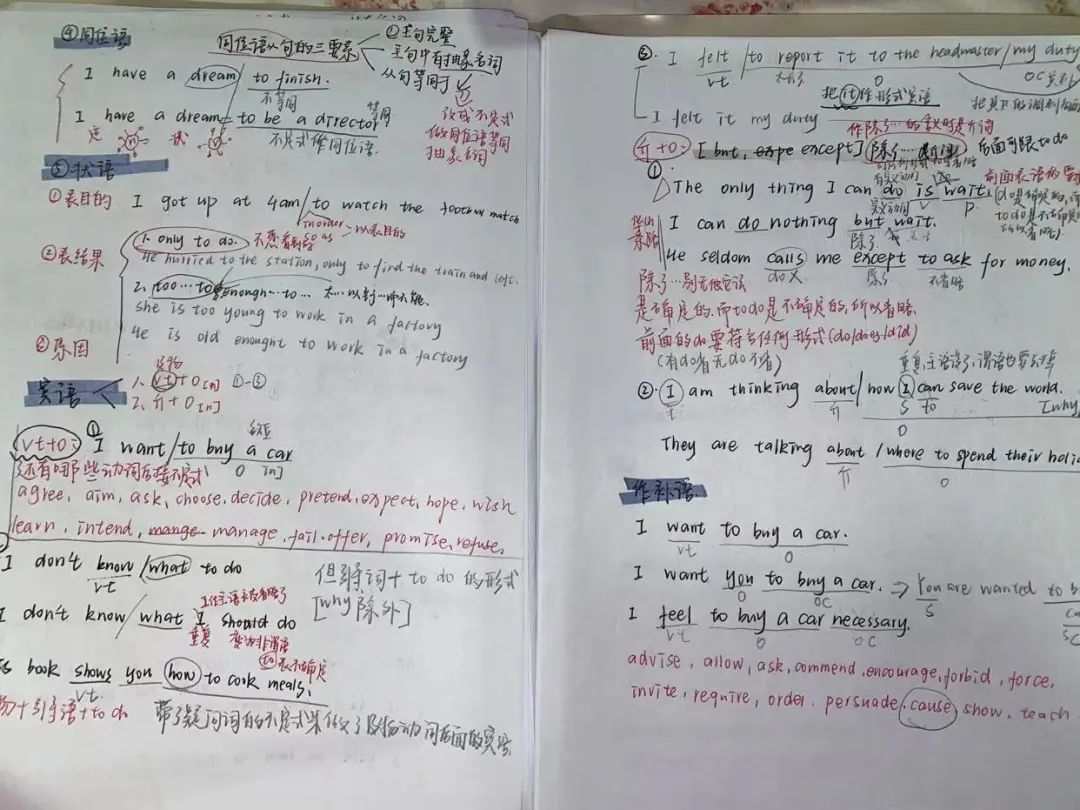 ④同位语
同位语从句的三要素
①主句完整
主句中有抽象名词
从句等同于
I have a dream / to finish.
不等同
改成不定式
做同位语等同
抽象名词
I have a dream to be a director
等同
不定式作同位语.
⑤状语
①表目的 I got up at 4am / to watch the match
in order
so as
以表目的
②表结果
1. only to do.
He hurried to the station, only to find the train and left.
2. too...to enongh...to...
she is too young to work in a factory
He is old enought to work in a factory
③原因
宾语
1. vt + O [n] ①-③
2. 介 + O [n]
vt+O: ① I want / to buy a car
O [n]
还有哪些动词后接不定式
agree, aim, ask, choose, decide, pretend, expect, hope, wish
learn, intend, mange manage, fail, offer, promise, refuse,
I don't know / what to do
vt
但引导词+ to do 的形式
[why 除外]
I don't know / what I should do
重复 变为非谓语
to表不确定
book shows you how to cook meals.
vt.
+引导语+to do
带了疑问词的不定式来做了及物动词后面的宾语
③. I felt / to report it to the headmaster / my duty
vt
O
OC
把it作形式宾语
I felt it my duty
作除了...的意义时是介词
介+O: [but, expe except] 除了
后面可跟to do
① The only thing I can do is wait.
实义动词
V
P.
I can do nothing but wait.
除了
He seldom calls me except to ask for money.
do X
除了
不省略
除了...别无他
是确定的,而to do是不确定的,所以省略
前面的do要符合任何形式(do/does/did)
(有do省无do不省)
重复,主语该了,谓语也要去掉
②. I am thinking about / how I can save the world.
介
S to
O
[why
They are talking about / where to spend their holi
介
O
作补语
I want to buy a car.
vt
O
I want you to buy a car. ⇒ You are wanted to b
O
OC
S
SC
I feel to buy a car necessary.
vt
O
OC
advise, allow, ask, commend, encourage, forbid, force,
invite, require, order, persuade, cause, show, teach